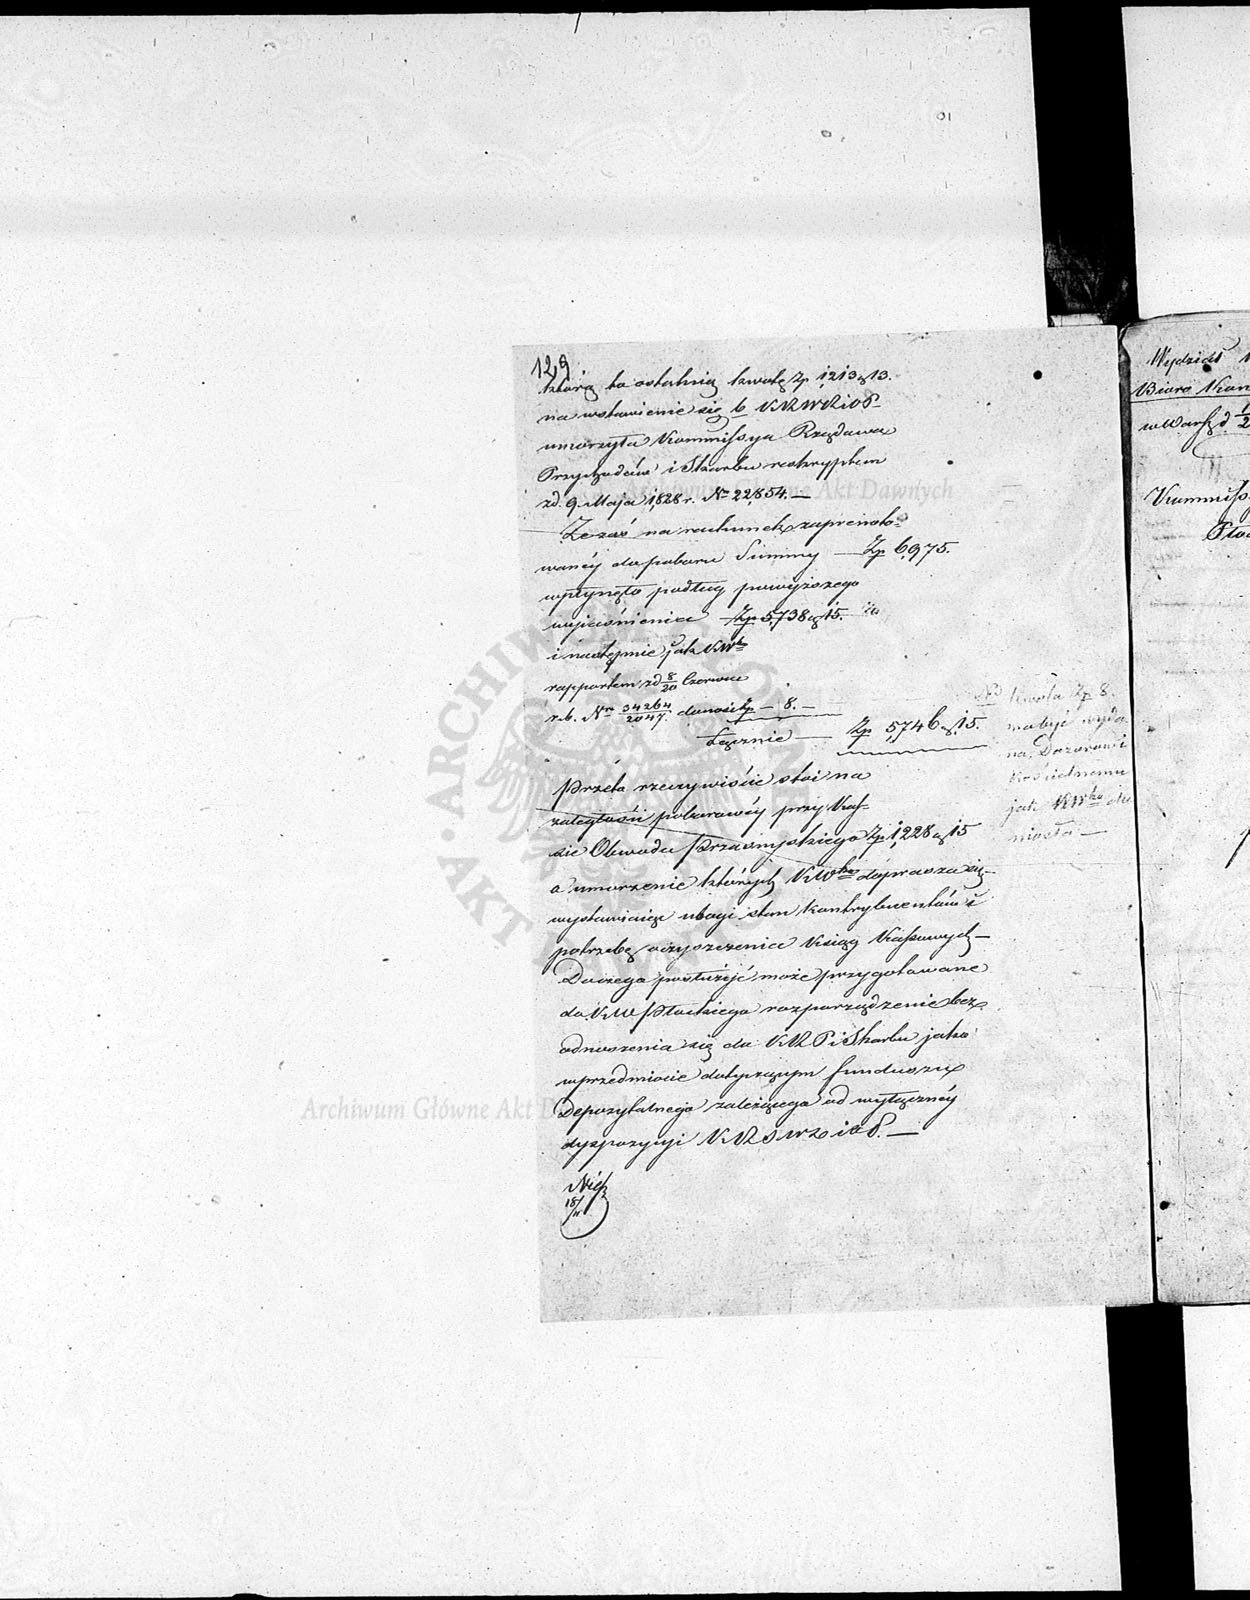 129
którą to ostatnią kwotę Zp 1,213 g 13.
na wstawienie się b. KRWRiOP
umorzyła Kommissya Rządowa
Przychodów i Skarbu reskryptem
zd. 9. Maja 1828 r. No 22,854. —
Że zaś na rachunek zaprenoto-
wanéy do poboru Summy — Zp 6,975.
wpłynęło podług powyższego
wyjaśnienia Zp 5,738 g 15.
i następnie jak KWka
rapportem zd 8/20 Czerwca
r. b. Nr 34264/2047. donosi Zp — 8. —
Łącznie — Zp 5,746 g 15.
Przeto rzeczywiście stoi na
zaległości poborowéy przy Kas-
sie Obwodu Przasnyskiego Zp 1,228 g 15
o umorzenie których KWka doprasza się
wystawiając ubogi stan kontrybuentów i
potrzebę oczyszczenia Ksiąg Kassowych —
Do czego posłużyć może przygotowane
do KW Płockiego rozporządzenie bez
odnoszenia się do KRP i Skarbu jako
w przedmiocie dotyczącym funduszu
Depozytalnego zależącego od wyłącznéy
dyspozycyi KRSWD i OP. —
18/11
Kwota Zp 8.
ma być wyda-
na Dozorowi
Kościelnemu
jak KWka do-
niosła —
Wydział
Biuro Kon
w Warsz d
Kommiss
Płoc
Archiwum Główne Akt Dawnych
Archiwum Główne Akt D
ARCHIWUM GŁÓWNE AKT